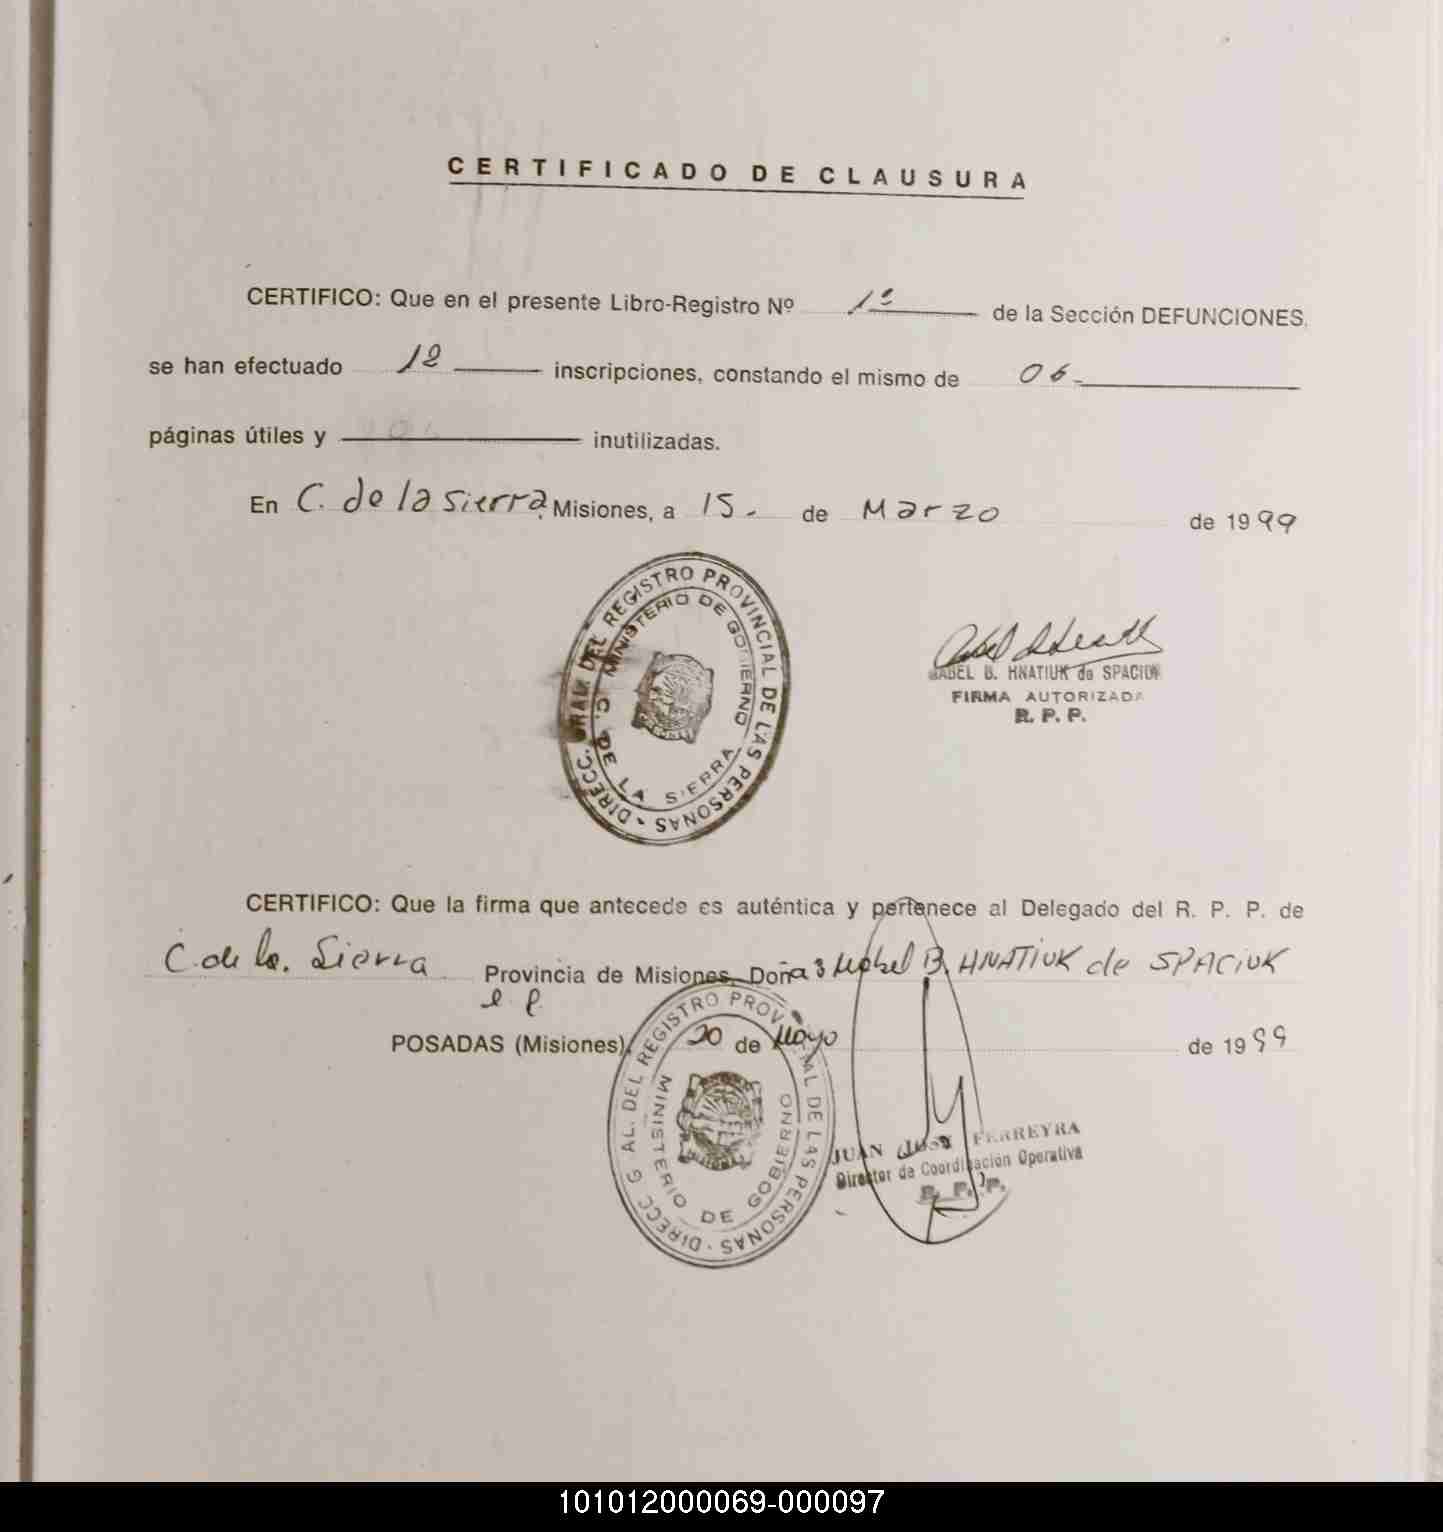 CERTIFICADO DE CLAUSURA
CERTIFICO: Que en el presente Libro-Registro Nº 1º de la Sección DEFUNCIONES,
se han efectuado 12 inscripciones, constando el mismo de 06.
páginas útiles y inutilizadas.
En C. de la sierra, Misiones, a 15. de Marzo de 1999
DIRECC. GRAL. DEL REGISTRO PROVINCIAL DE LAS PERSONAS
MINISTERIO DE GOBIERNO
C. DE LA SIERRA
B. HNATIUK de SPACIUK
FIRMA AUTORIZADA
R. P. P.
CERTIFICO: Que la firma que antecede es auténtica y pertenece al Delegado del R. P. P. de
C. de la. Sierra Provincia de Misiones, Doña B. HNATIUK de SPACIUK
POSADAS (Misiones), 20 de Mayo de 1999
DIRECC G AL. DEL REGISTRO PROVINCIAL DE LAS PERSONAS
MINISTERIO DE GOBIERNO
JUAN JOSE FERREYRA
Director de Coordinación Operativa
R. P. P.
101012000069-000097